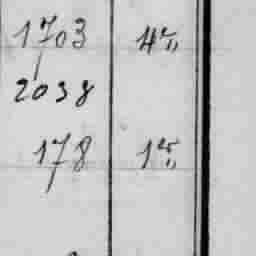 1703 4 r̃ "
2038
178 1 r̃ "